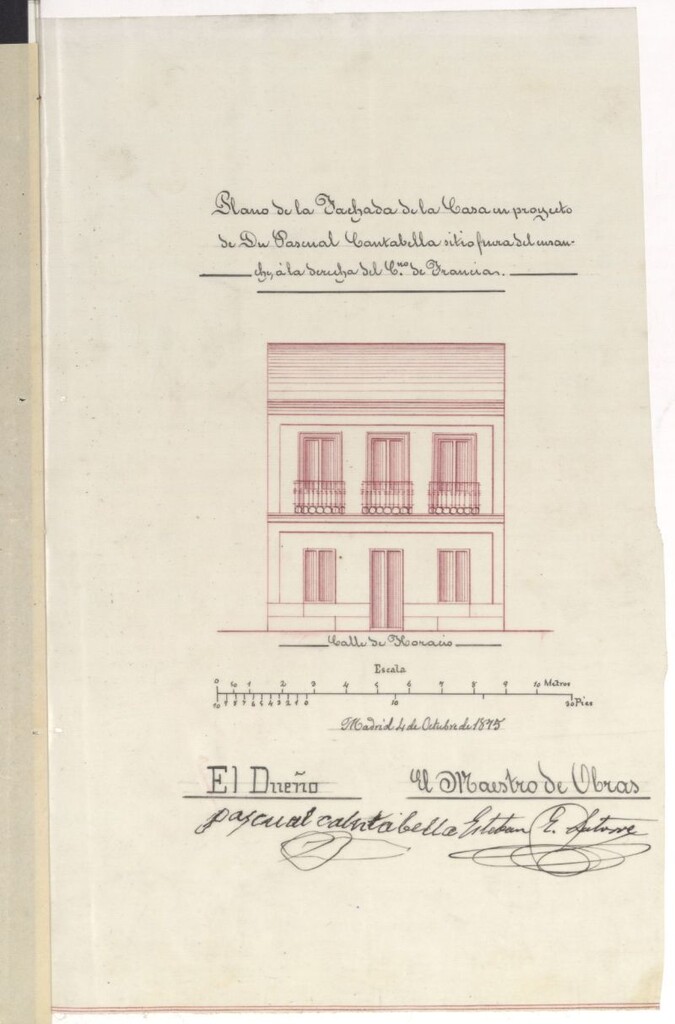 Plano de la Fachada de la Casa en proyecto
de Dn Pascual Cantabella sitio fuera del ensan-
che, á la derecha del C.no de Francia.
Calle de Horacio
Escala
0 50 1 2 3 4 5 6 7 8 9 10 Metros
10 9 8 7 6 5 4 3 2 1 0 10 20 Pies
Madrid 4 de Octubre de 1875
El Dueño El Maestro de Obras
pascual cantabella Esteban E.